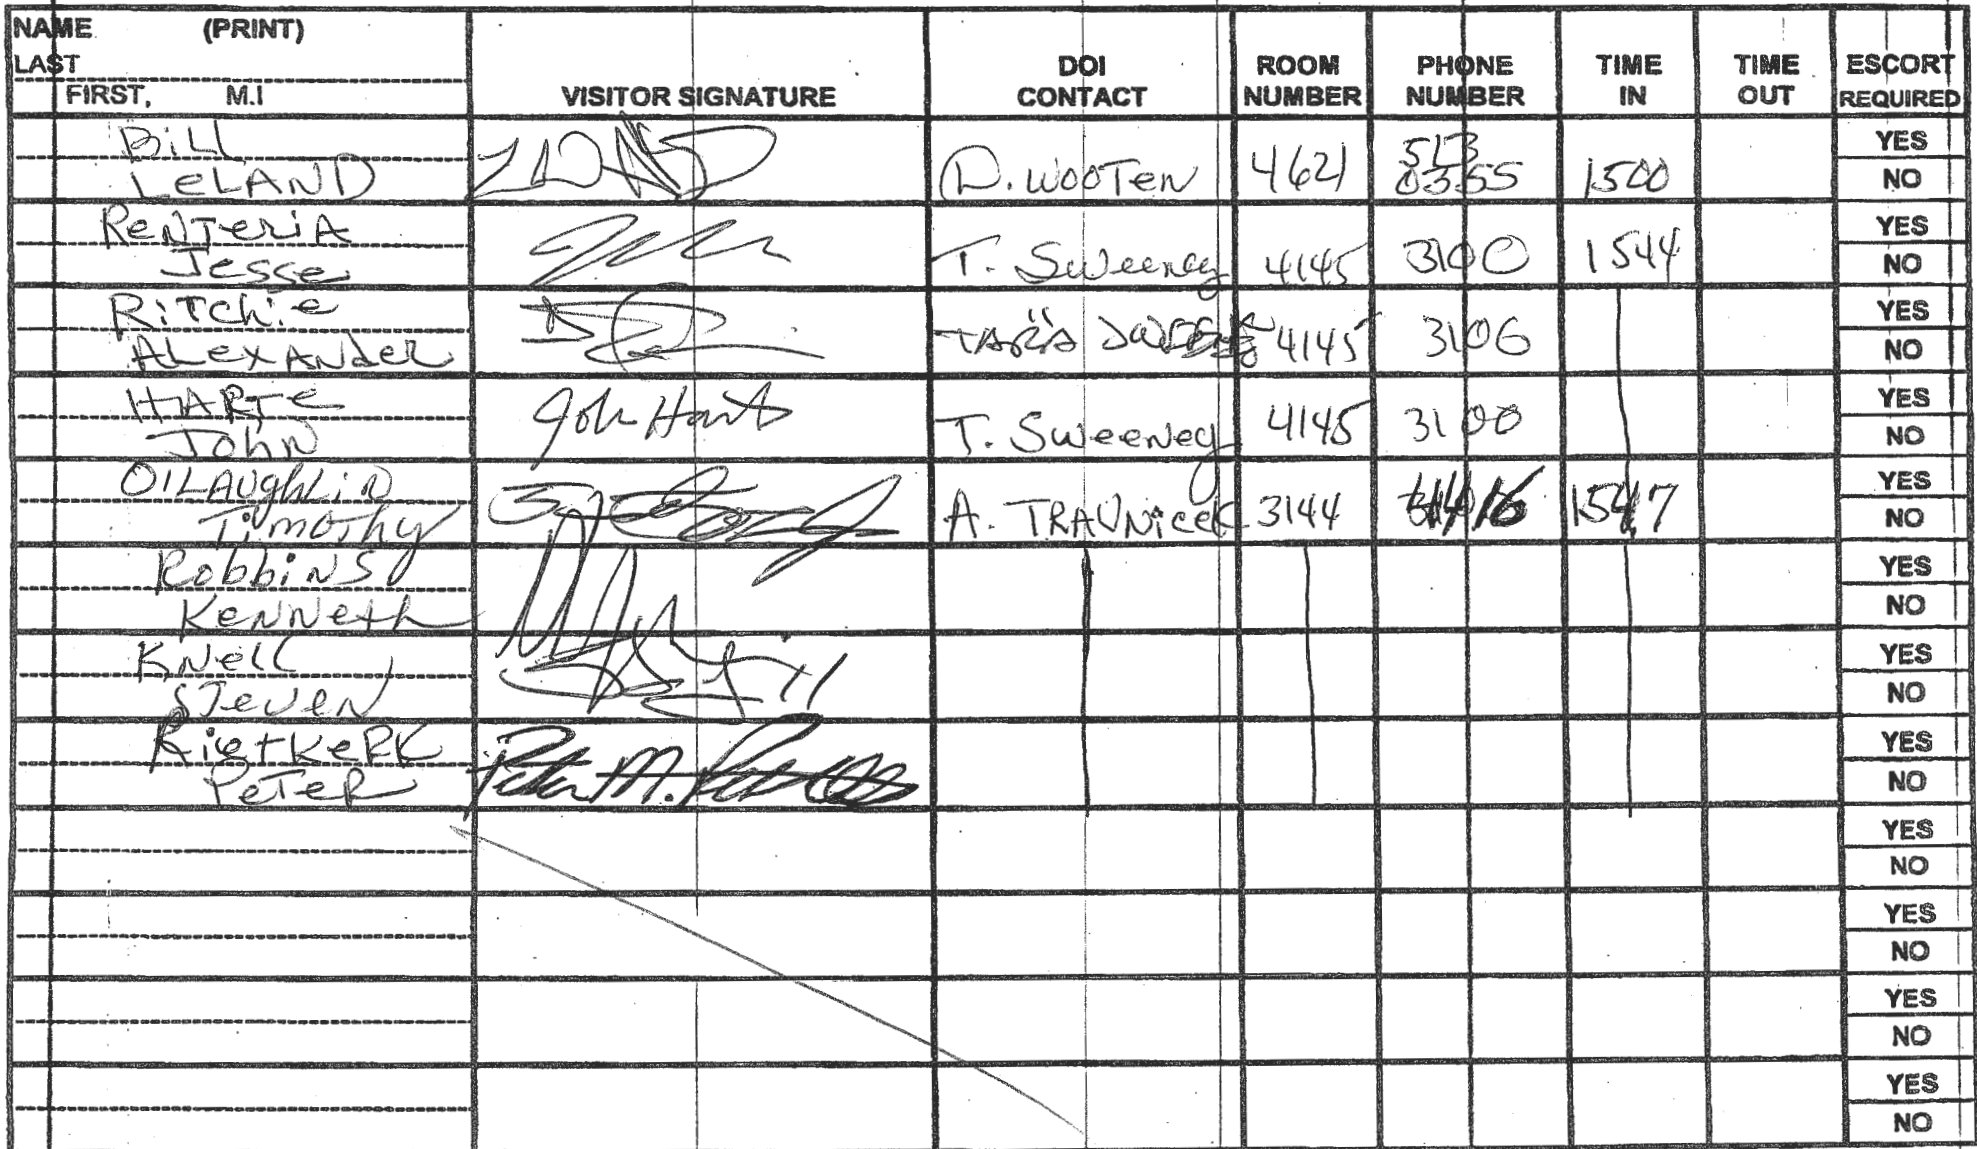 NAME (PRINT)
LAST
FIRST, M.I
VISITOR SIGNATURE
DOI CONTACT
ROOM NUMBER
PHONE NUMBER
TIME IN
TIME OUT
ESCORT REQUIRED
Bill
LeLAND
D. WOOTEN 4621 513 0355 1500
YES
NO
RENTeriA
Jesse
T. Sweeney 4145 3100 1544
YES
NO
RiTchie
ALexANder
TARA 4145 3106
YES
NO
HARTE
JOHN
John Hart
T. Sweeney 4145 3100
YES
NO
O'LAughLiN
TimoThy
A. TRAVNiceK 3144 1547
YES
NO
RobbiNS
KeNNeth
YES
NO
KNeLL
STeveN
YES
NO
RietKeRK
PeTeR
Peter M.
YES
NO
YES
NO
YES
NO
YES
NO
YES
NO